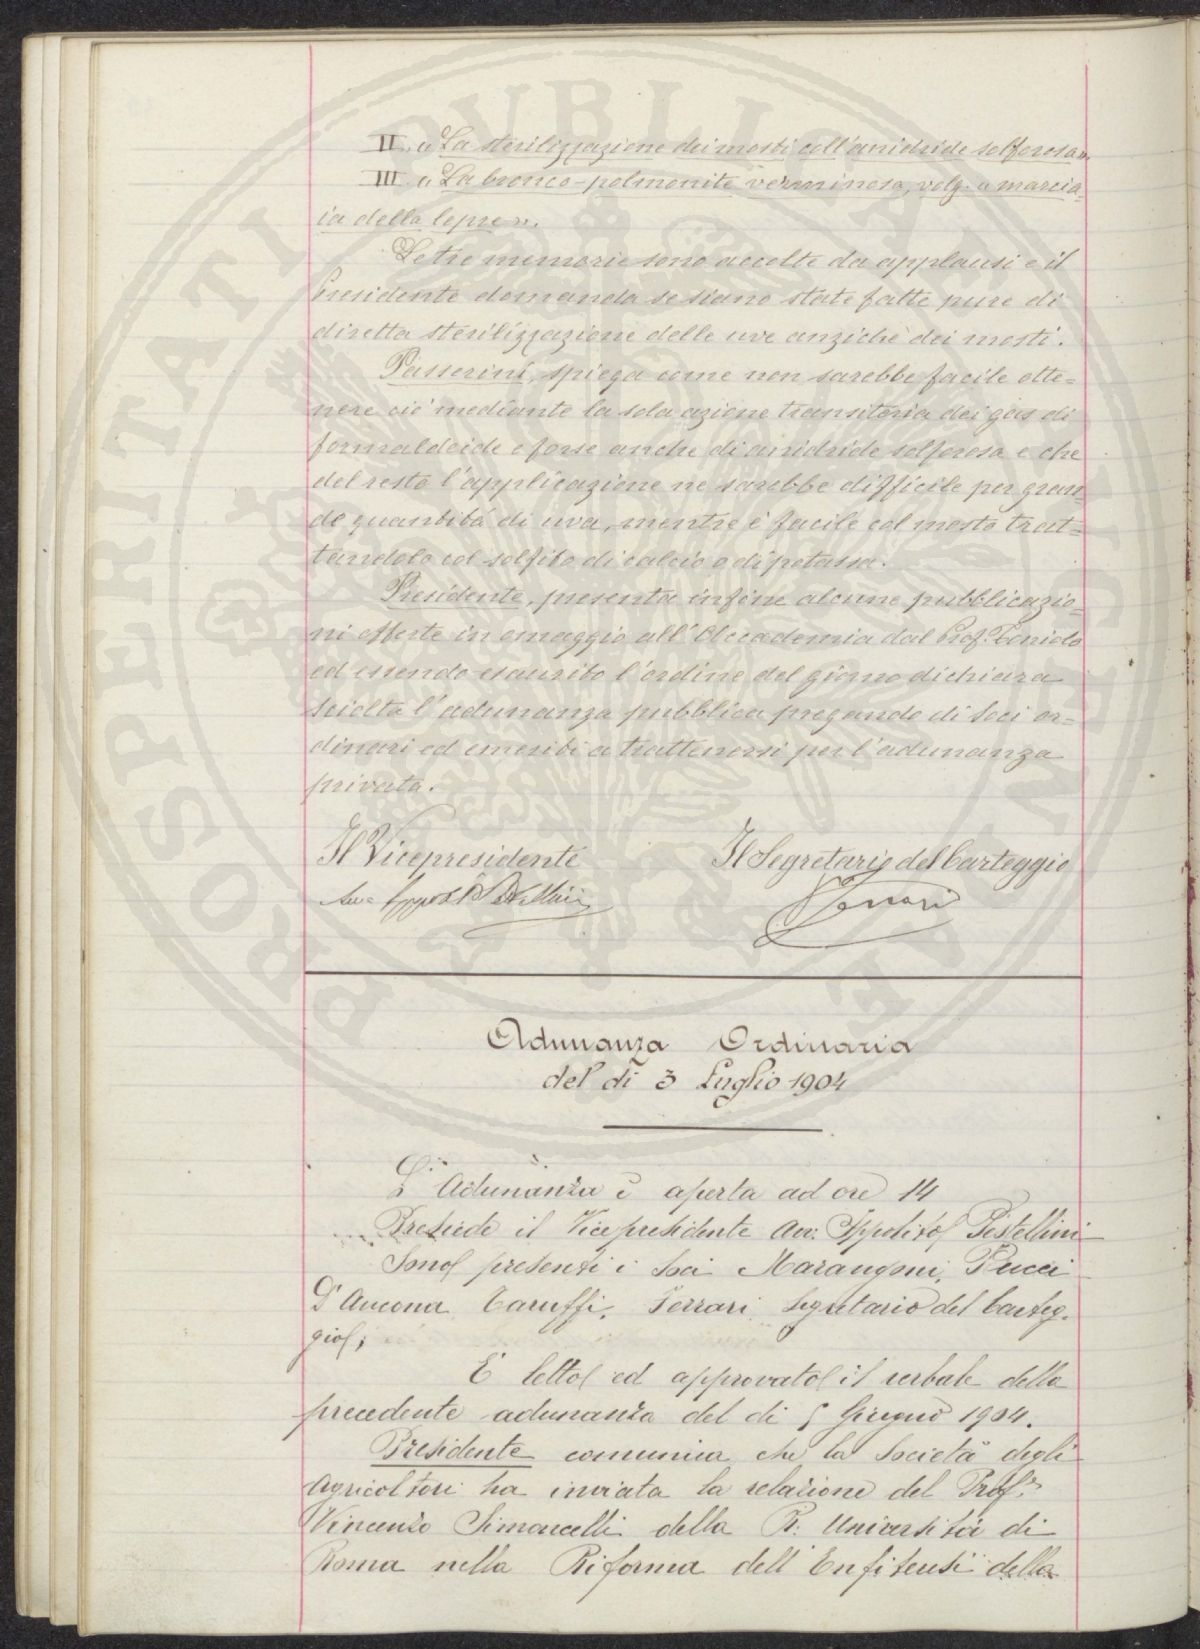 II. « La sterilizzazione dei mosti coll'anidride solforosa».
III « La bronco-polmonite verminosa, volg.
ia della lepre ».
Le tre memorie sono accolte da applausi e il
Presidente domanda se siano state fatte pure di
diretta sterilizzazione delle uve anzichè dei mosti.
Passerini, spiega come non sarebbe facile otte=
nere ciò mediante la sola azione transitoria dei gas di
formaldeide e forse anche di anidride solforosa e che
del resto l'applicazione ne sarebbe difficile per gran=
de quantità di uva, mentre è facile col mosto trat=
tandolo col solfito di calcio o di potassa.
Presidente, presenta infine alcune pubblicazio=
ni offerte in omaggio all'Accademia dal Prof.
ed essendo esaurito l'ordine del giorno dichiara
sciolta l'adunanza pubblica pregando di Soci or=
dinari ed emeriti a trattenersi per l'adunanza
privata.
Il Vicepresidente Il Segretario del Carteggio
Ferrari
Adunanza Ordinaria
del dì 3 Luglio 1904
L'Adunanza è aperta ad ore 14
Presiede il Vicepresidente Avv: Ippolito Pestellini
Sono presenti i soci Marangoni, Pucci
D'Ancona Caruffi, Ferrari segretario del Carteg.
gio;
È letto ed approvato il verbale della
precedente adunanza del dì 5 Giugno 1904.
Presidente comunica che la Società degli
Agricoltori ha inviata la relazione del Prof.
Vincenzo Simoncelli della R: Università di
Roma nella Riforma dell'Enfiteusi della